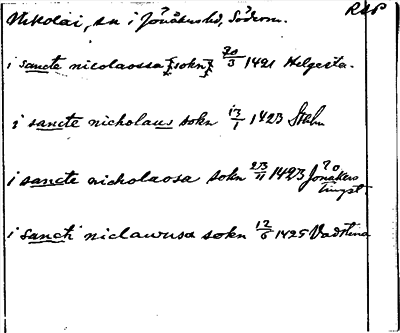 RAP
Nikolai, sn i Jönåkers hd, Söderm.
i sancte nicolaossa {sokn} 20/3 1421 Helgesta.
i sancte nicholaus sokn 13/1 1423 Sthlm
i sancte nicholaosa sokn 23/11 1423 Jönåkers 20
tingst.
i sancti niclawusa sokn 12/6 1425 Vadstena